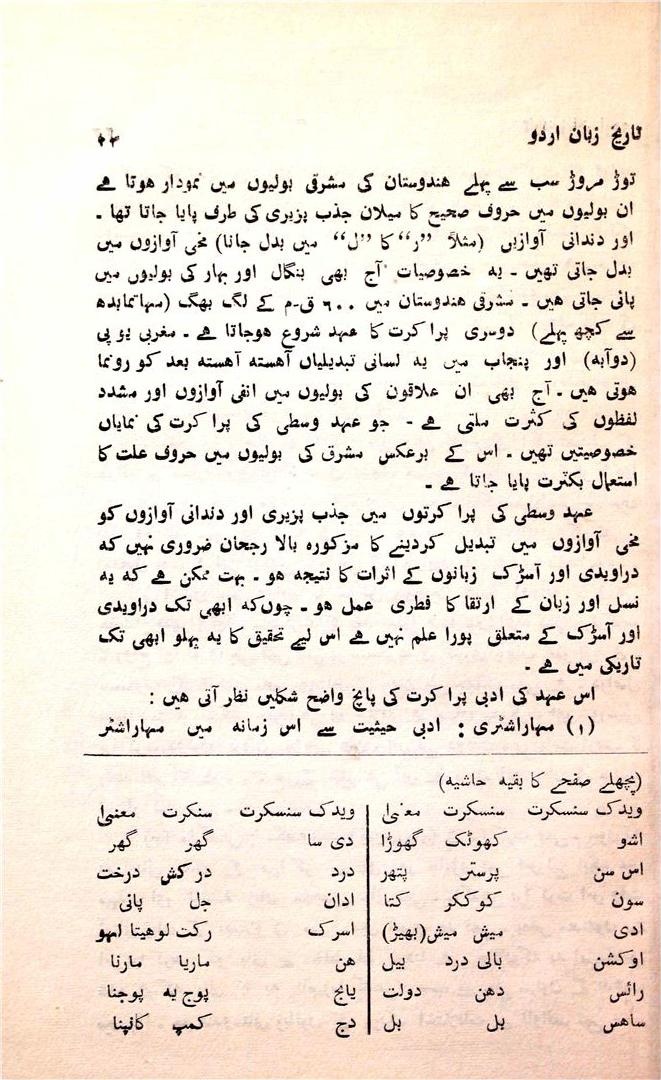 تاریخ زبان اردو ۴۴
توڑ مروڑ سب سے پہلے ھندوستان کی مشرقی بولیوں میں نمودار ھوتا ھے
ان بولیوں میں حروف صحیح کا میلان جذب پزیری کی طرف پایا جاتا تھا ۔
اور دندانی آوازیں (مثلاً ”ر“ کا ”ل“ میں بدل جانا) مخی آوازوں میں
بدل جاتی تھیں ۔ یہ خصوصیات آج بھی بنگال اور بہار کی بولیوں میں
پائی جاتی ھیں ۔ مشرقی ھندوستان میں ۶۰۰ ق۔م کے لگ بھگ (مہاتمابدھ
سے کچھ پہلے) دوسری پراکرت کا عہد شروع ھوجاتا ھے ۔ مغربی یو پی
(دوآبہ) اور پنجاب میں یہ لسانی تبدیلیاں آھستہ آھستہ بعد کو رونما
ھوتی ھیں ۔ آج بھی ان علاقون کی بولیوں میں انفی آوازوں اور مشدد
لفظوں کی کثرت ملتی ھے - جو عہد وسطی کی پراکرت کی نمایاں
خصوصیتیں تھیں ۔ اس کے برعکس مشرق کی بولیوں میں حروف علت کا
استعمال بکثرت پایا جاتا ھے ۔
عہد وسطی کی پراکرتوں میں جذب پزیری اور دندانی آوازوں کو
مخی آوازوں میں تبدیل کردینے کا مزکورہ بالا رجحان ضروری نہیں کہ
دراویدی اور آسڑک زبانوں کے اثرات کا نتیجہ ھو ۔ بہت ممکن ھے کہ یہ
نسل اور زبان کے ارتقا کا فطری عمل ھو ۔ چوں‌کہ ابھی تک دراویدی
اور آسڑک کے متعلق پورا علم نہیں ھے اس لیے تحقیق کا یہ پہلو ابھی تک
تاریکی میں ھے ۔
اس عہد کی ادبی پراکرت کی پانچ واضح شکلیں نظر آتی ھیں :
(۱) مہاراشٹری : ادبی حیثیت سے اس زمانہ میں مہاراشٹر
(پچھلے صفحے کا بقیہ حاشیہ)
ویدک سنسکرت سنسکرت معنیٰ ویدک سنسکرت سنکرت معنیٰ
اشو کھوٹک گھوڑا دی سا گھر گھر
اس سن پرستر پتھر درد درکش درخت
سون کوککر کتا ادان جل پانی
ادی میش میش(بھیڑ) اسرک رکت لوھیتا لہو
اوکشن بالی درد بیل ھن ماریا مارنا
رائس دھن دولت یایج پوج یہ پوجنا
ساھس بل بل دج کمپ کانپنا